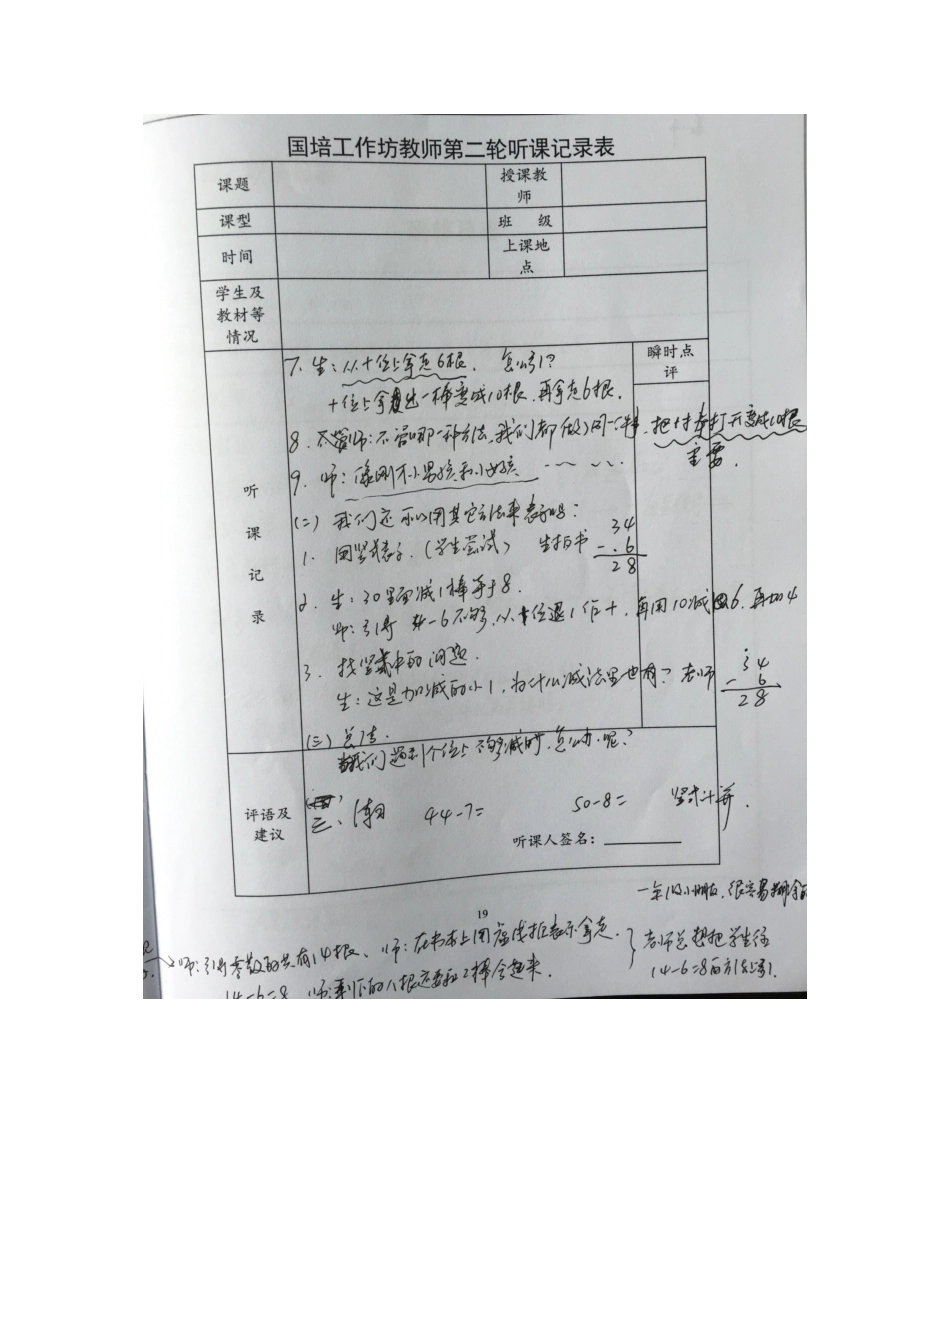 国培工作坊教师第二轮听课记录表
课题 授课教师
课型 班 级
时间 上课地点
学生及教材等情况
听课记录 瞬时点评
7. 生：从十位上拿走6根. 怎么引?
十位上拿出一棒变成10根.再拿走6根.
8. 师：不管哪一种方法,我们都做了同一件事. 把1捆打开变成10根
重要.
9. 师：像刚才小男孩和小女孩
(二) 我们还可以用其它方法来表示吗?
1. 用竖式表示.(学生尝试) 生板书
34
- 6
28
2. 生：30里面减1棒等于8.
师：引导 4-6不够,从十位退1作十. 再用10减6.再加4
3. 找竖式中的问题.
生：这是加减的小1,为什么减法里也有? 老师
34
- 6
28
(三) 总结.
当我们遇到个位上不够减时,怎么办呢?
评语及建议
三、练习 44-7= 50-8= 竖式计算.
听课人签名：
19
一年级小朋友,很容易
师：引导零散的共有14根、师：在书本上用虚线框表示拿走.
14-6=8 师：剩下的8根还要和2棒合起来.
老师总想把学生往
14-6=8的方法上引.